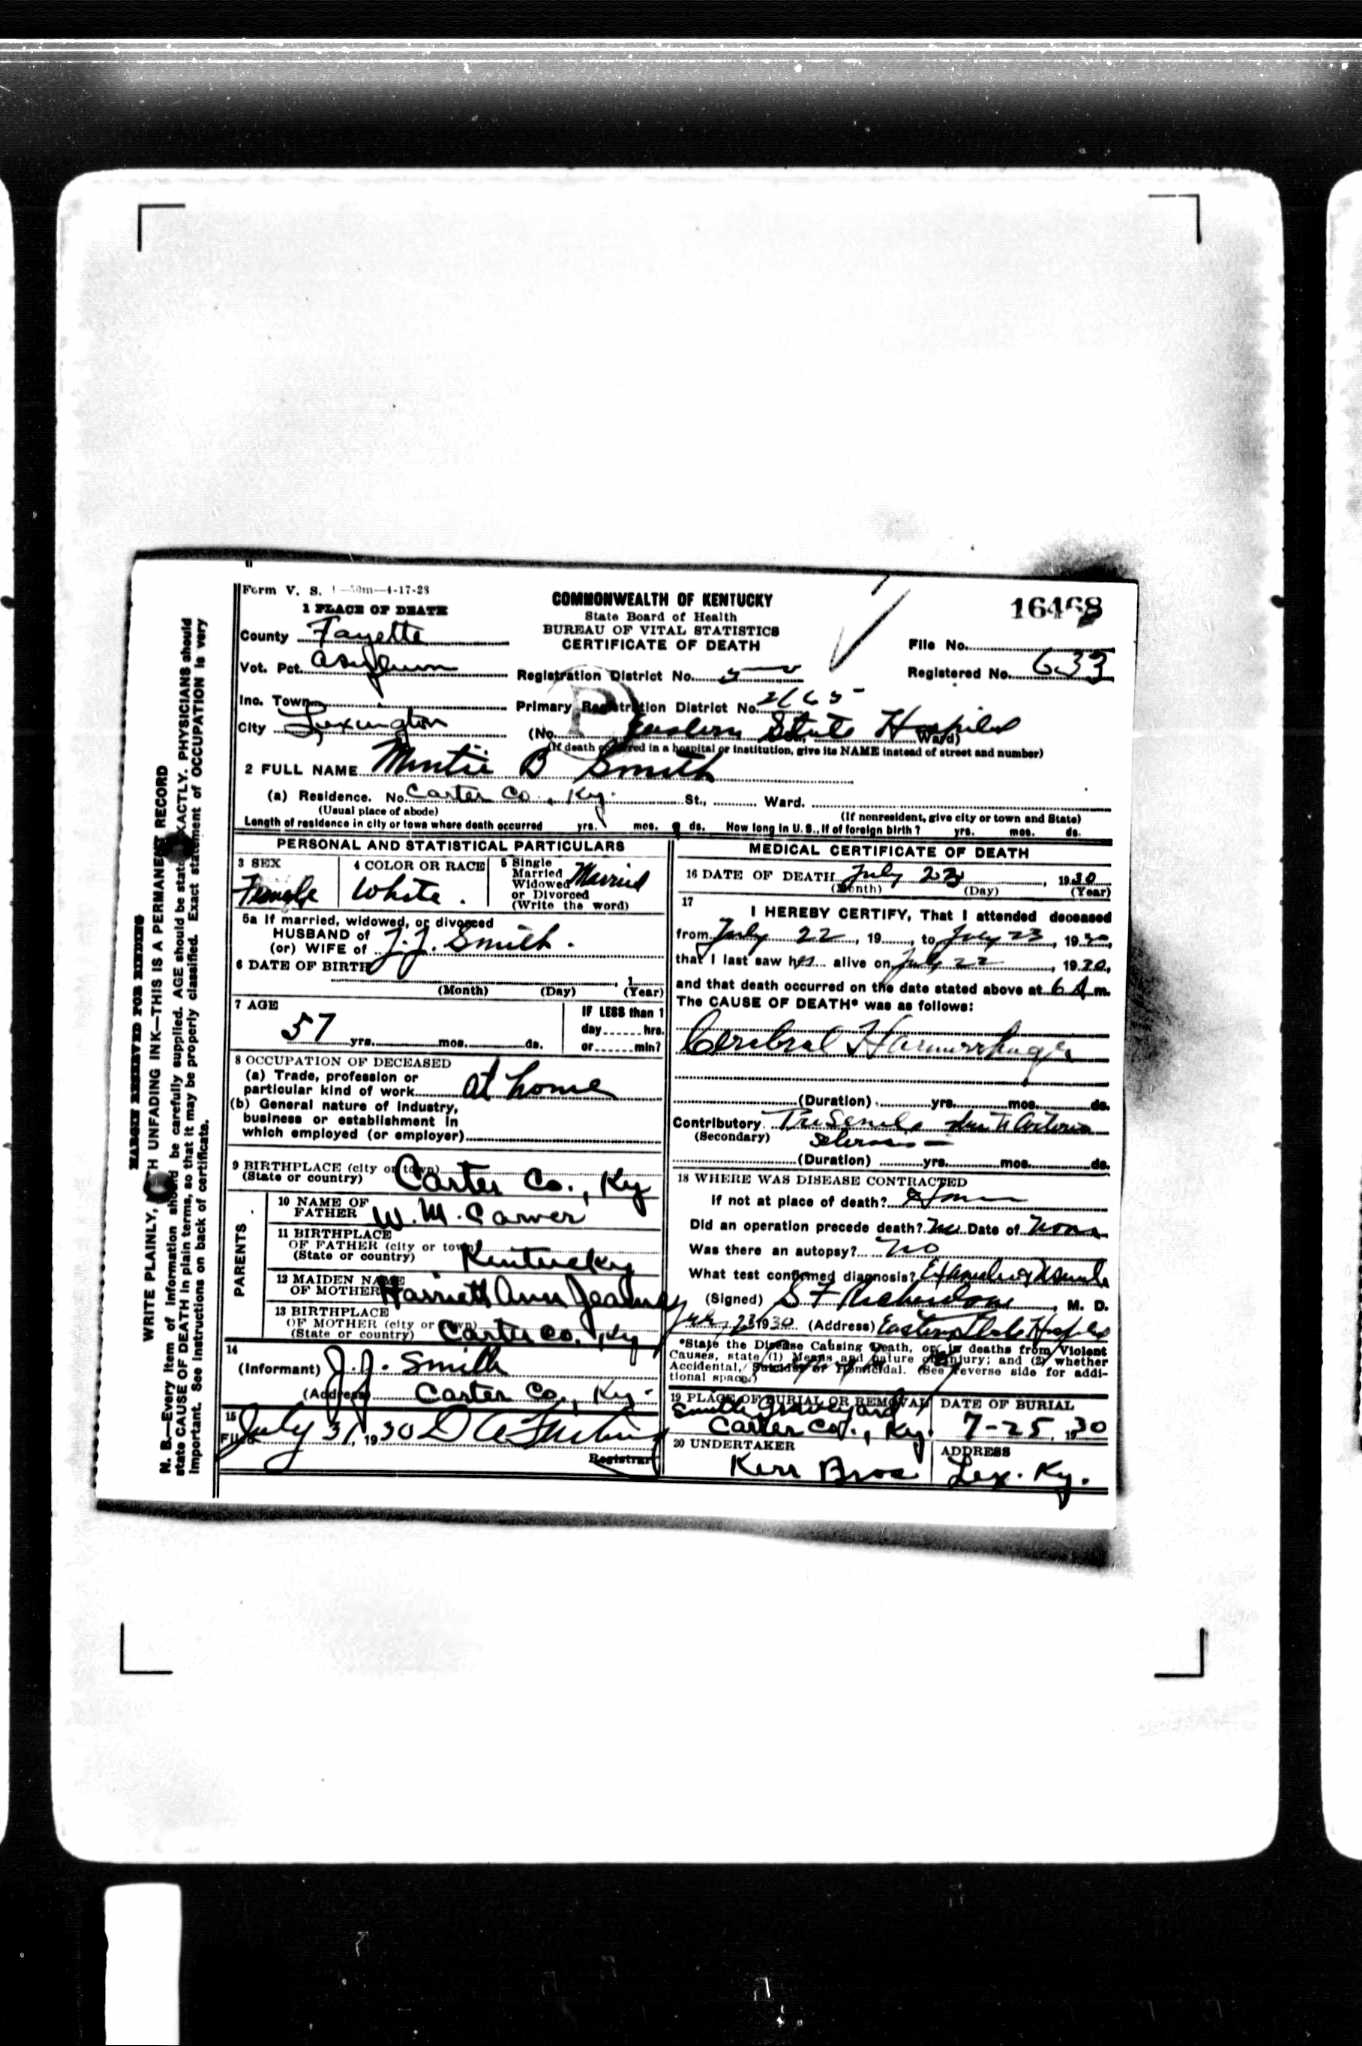 MARGIN RESERVED FOR BINDING
WRITE PLAINLY, UNFADING INK—THIS IS A PERMANENT RECORD
N. B.—Every item of information should be carefully supplied. AGE should be stated EXACTLY. PHYSICIANS should
state CAUSE OF DEATH in plain terms, so that it may be properly classified. Exact statement of OCCUPATION is very
important. See instructions on back of certificate.
Form V. S. 1—50m—4-17-28
COMMONWEALTH OF KENTUCKY
State Board of Health
BUREAU OF VITAL STATISTICS
CERTIFICATE OF DEATH
16468
File No.
Registered No. 633
1 PLACE OF DEATH
County Fayette
Vot. Pct. Asylum
Registration District No.
Inc. Town
Primary Registration District No. 2165
City Lexington
(No. Eastern State Hospital Ward)
(If death occurred in a hospital or institution, give its NAME instead of street and number)
2 FULL NAME Mintie B Smith
(a) Residence. No. Carter Co., Ky. St., Ward.
(Usual place of abode) (If nonresident, give city or town and State)
Length of residence in city or town where death occurred yrs. mos. ds. How long in U. S., if of foreign birth? yrs. mos. ds.
PERSONAL AND STATISTICAL PARTICULARS
3 SEX Female
4 COLOR OR RACE White.
5 Single
Married
Widowed
or Divorced
(Write the word) Married
5a If married, widowed, or divorced
HUSBAND of
(or) WIFE of J. J. Smith.
6 DATE OF BIRTH
(Month) (Day) 1 (Year)
7 AGE 57 yrs. mos. ds.
IF LESS than 1
day hrs.
or min?
8 OCCUPATION OF DECEASED
(a) Trade, profession or
particular kind of work At home
(b) General nature of industry,
business or establishment in
which employed (or employer)
9 BIRTHPLACE (city or town)
(State or country) Carter Co., Ky
PARENTS
10 NAME OF
FATHER W. M. Carver
11 BIRTHPLACE
OF FATHER (city or town)
(State or country) Kentucky
12 MAIDEN NAME
OF MOTHER Harriett Ann
13 BIRTHPLACE
OF MOTHER (city or town)
(State or country) Carter Co, Ky
14
(Informant) J. J. Smith
(Address) Carter Co., Ky.
15
Filed July 31, 1930 D A
Registrar
MEDICAL CERTIFICATE OF DEATH
16 DATE OF DEATH July 23, 1930
(Month) (Day) (Year)
17
I HEREBY CERTIFY, That I attended deceased
from July 22, 19, to July 23, 1930,
that I last saw her alive on July 22, 1930,
and that death occurred on the date stated above at 6 A m.
The CAUSE OF DEATH* was as follows:
Cerebral Haemorrhage
(Duration) yrs. mos. ds.
Contributory
(Secondary)
(Duration) yrs. mos. ds.
18 WHERE WAS DISEASE CONTRACTED
If not at place of death? Home
Did an operation precede death? No Date of None
Was there an autopsy? No
What test confirmed diagnosis?
(Signed) S F Richardson, M. D.
July 23 1930 (Address) Eastern State Hospital
*State the Disease Causing Death, or in deaths from Violent
Causes, state (1) Means and nature of Injury; and (2) whether
Accidental, Suicidal or Homicidal. (See reverse side for addi-
tional space.)
19 PLACE OF BURIAL OR REMOVAL
Smith Graveyard
Carter Co., Ky.
DATE OF BURIAL
7-25, 1930
20 UNDERTAKER
Kerr Bros
ADDRESS
Lex. Ky.